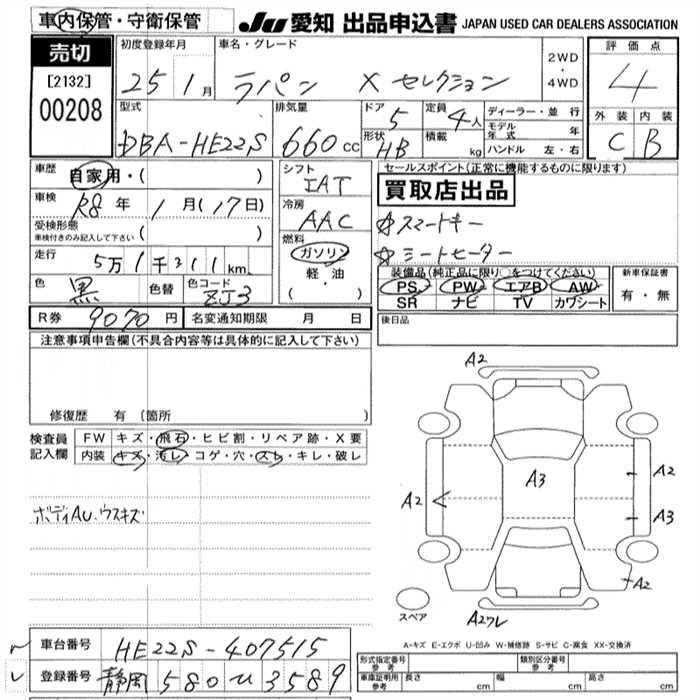 車内保管・守衛保管
JU 愛知 出品申込書 JAPAN USED CAR DEALERS ASSOCIATION
売切
[2132]
00208
初度登録年月
25 1月
車名・グレード
ラパン X セレクション
2WD
・
4WD
評価点
4
外装 内装
C B
型式
DBA-HE22S
排気量
660cc
ドア 5
形状 HB
定員 4人
積載 kg
ディーラー・並行
モデル年式 年
ハンドル 左・右
車歴 自家用・( )
車検 R8年 1月(17日)
受検形態
車検付きのみ記入して下さい ( )
走行 5万1千311km
色 黒 色替 色コード ZJ3
シフト
IAT
冷房
AAC
燃料
ガソリン
軽・油
( ・ )
セールスポイント(正常に機能するものに限ります)
買取店出品
☆スマートキー
☆シートヒーター
装備品(純正品に限り○をつけてください)
PS PW エアB AW
SR ナビ TV カワシート
新車保証書
有・無
R券 9070円 名変通知期限 月 日
後日品
注意事項申告欄(不具合内容等は具体的に記入して下さい)
修復歴 有 (箇所 )
検査員記入欄
FW キズ・飛石・ヒビ割・リペア跡・X要
内装 キズ・汚レ・コゲ・穴・スレ・キレ・破レ
ボディAU.ウスキズ
A2
A2
A3
A2
A3
A2
A2ワレ
スペア
A-キズ E-エクボ U-凹み W-補修跡 S-サビ C-腐食 XX-交換済
車台番号 HE22S-407515
登録番号 静岡 580 ひ 3589
形式指定番号 参考
類別区分番号 参考
車庫証明用 参考 長さ cm 幅 cm 高さ cm